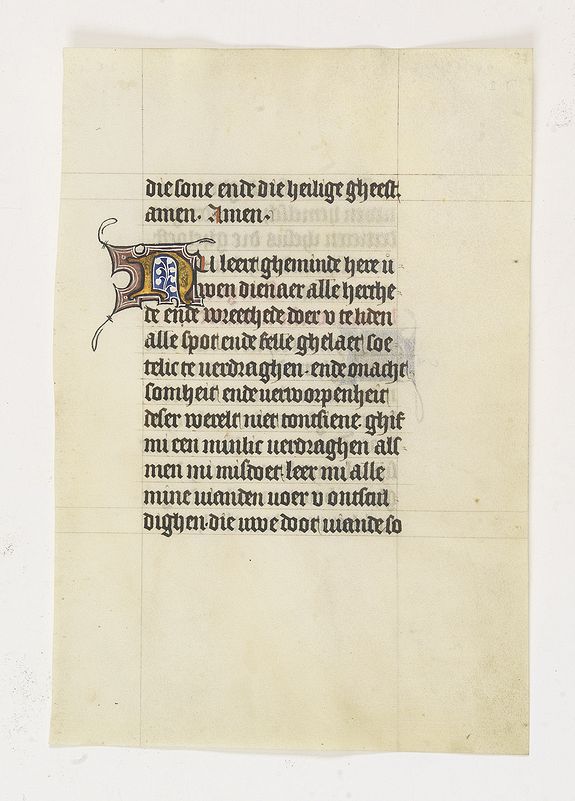 die sone ende die heilige gheest.
amen. Amen.
NU leert gheminde here u
wen dienaer alle herthe
de ende wreethede doer v te liden
alle spot ende felle ghelaet soe
telic te uerdraghen. ende onacht
somheit ende uerworpenheit
deser werelt niet tontsiene. ghif
mi een minlic uerdraghen als
men mi misdoet. leer mi alle
mine uianden uoer v ontscul
dighen. die uwe doot uiande so